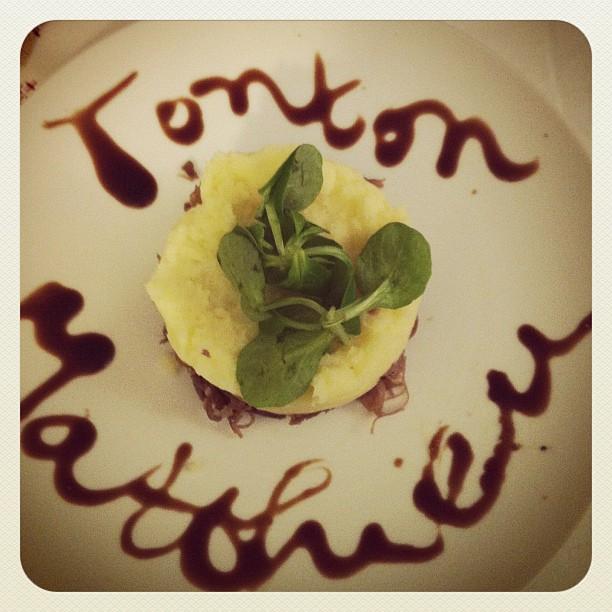 Tonton
Matthieu